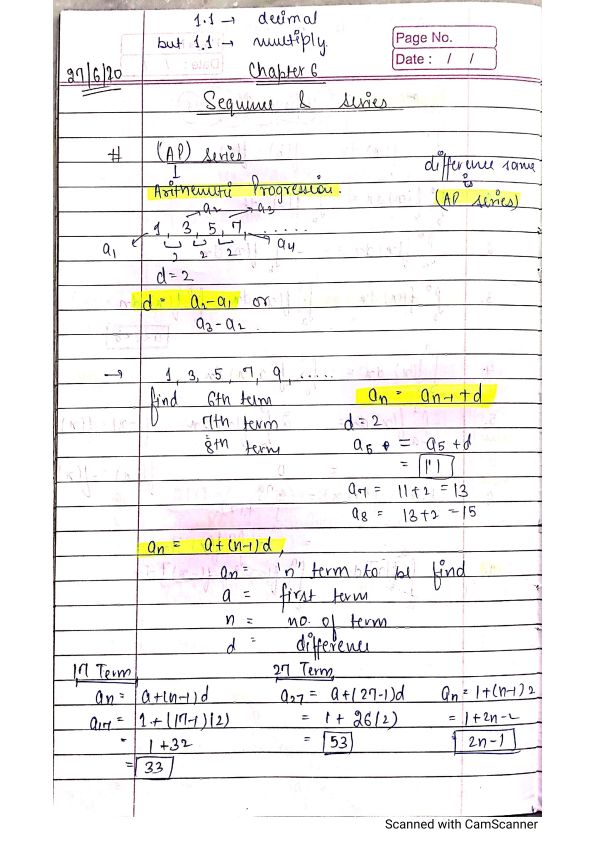 1.1 → decimal
but 1.1 → multiply.
Page No.
Date : / /
27/6/20
Chapter 6
Sequence & series
# (AP) series
difference same
is
Arithemetic Progression.
(AP series)
a2 a3
1, 3, 5, 7, ......
a1 2 2 2 a4
d = 2
d = a2 - a1 or
a3 - a2
→ 1, 3, 5, 7, 9, .....
find 6th term
an = an-1 + d
7th term d = 2
8th term a6 = a5 + d
= 11
a7 = 11+2 = 13
a8 = 13+2 = 15
an = a+(n-1)d,
an = 'n' term to be find
a = first term
n = no. of term
d = difference
17 Term 27 Term
an = a+(n-1)d a27 = a+(27-1)d an = 1+(n-1)2
a17 = 1+(17-1)(2) = 1+ 26(2) = 1+2n-2
= 1+32 = 53 2n-1
= 33
Scanned with CamScanner